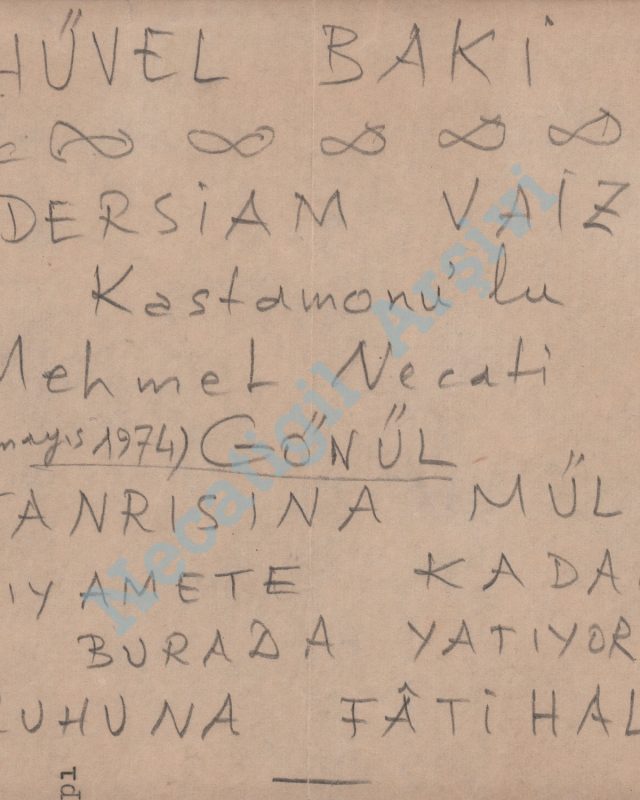 HÜVEL BAKİ
DERSİAM VAİZ
Kastamonu'lu
Mehmet Necati
mayıs 1974) GÖNÜL
TANRISINA MÜL
IYAMETE KADA
BURADA YATIYOR
RUHUNA FÂTİHAL
pı
Necatigil Arşivi